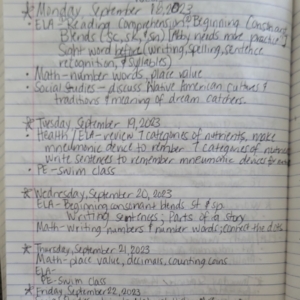 * Monday, September 18, 2023
• ELA - Reading Comprehension; Beginning Consonant
Blends (sc, sk, sn) (Abby needs more practice)
Sight word before (writing, spelling, sentence
recognition, & syllables)
• Math - number words, place value
• Social Studies - discuss Native American cultures &
traditions & meaning of dream catchers.
* Tuesday, September 19, 2023
• Health / ELA - review 7 categories of nutrients, make
mneumonic device to rember 7 categories of
write sentences to remember mneumonic devices
• PE - Swim class
* Wednesday, September 20, 2023
ELA - Beginning consonant blends st & sp
Writing sentences; Parts of a story
Math - Writing numbers & number words; connect the dots
* Thursday, September 21, 2023
Math - place value, decimals, counting coins
ELA -
PE - Swim class
* Friday, September 22, 2023